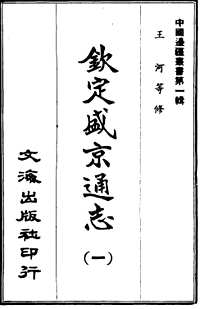 中國邊疆叢書第一輯
王河等修
欽定盛京通志
(一)
文海出版社印行